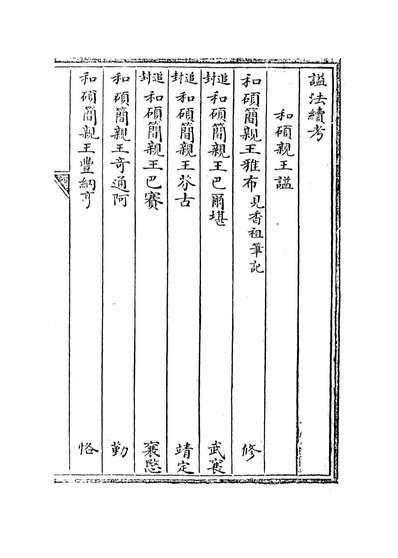 諡法續考
和碩親王諡
和碩簡親王雅布見香祖筆記 修
追封和碩簡親王巴爾堪 武襄
追封和碩簡親王芬古 靖定
追封和碩簡親王巴賽 襄愍
和碩簡親王竒通阿 勤
和碩簡親王豐納亨 恪